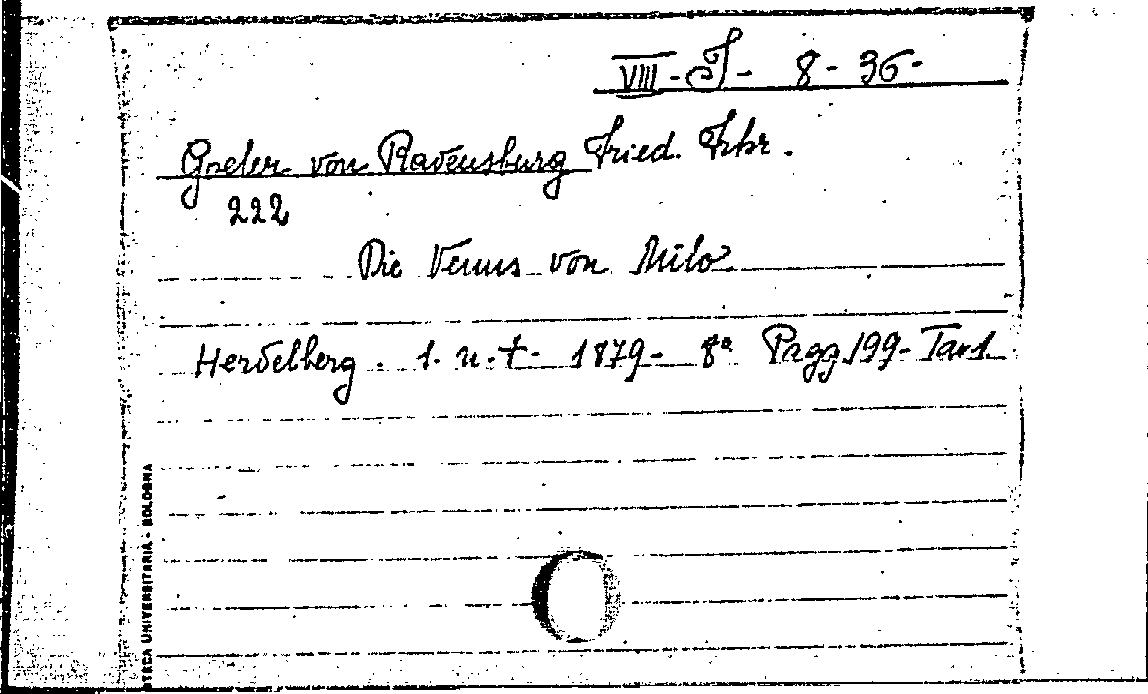 VIII - J - 8 - 36 -
Goeler von Ravensburg Fried. Frhr.
222
Die Venus von Milo
Heidelberg. 1. u. t. - 1879 - 8° Pagg. 199 - Tav 1.
TECA UNIVERSITARIA - BOLOGNA